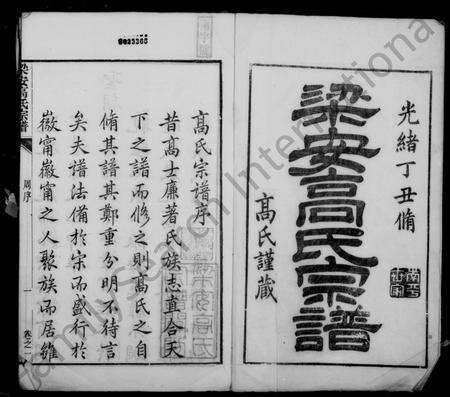 光緒丁丑脩
梁安高氏宗譜
高氏謹藏
高氏宗譜序
昔高士廉著氏族志直合天
下之譜而脩之則高氏之自
脩其譜其鄭重分明不待言
矣夫譜法備於宋而盛行於
徽甯徽甯之人聚族而居雖
梁安高氏宗譜
周序
一
卷之一
9023360
FamilySearch International